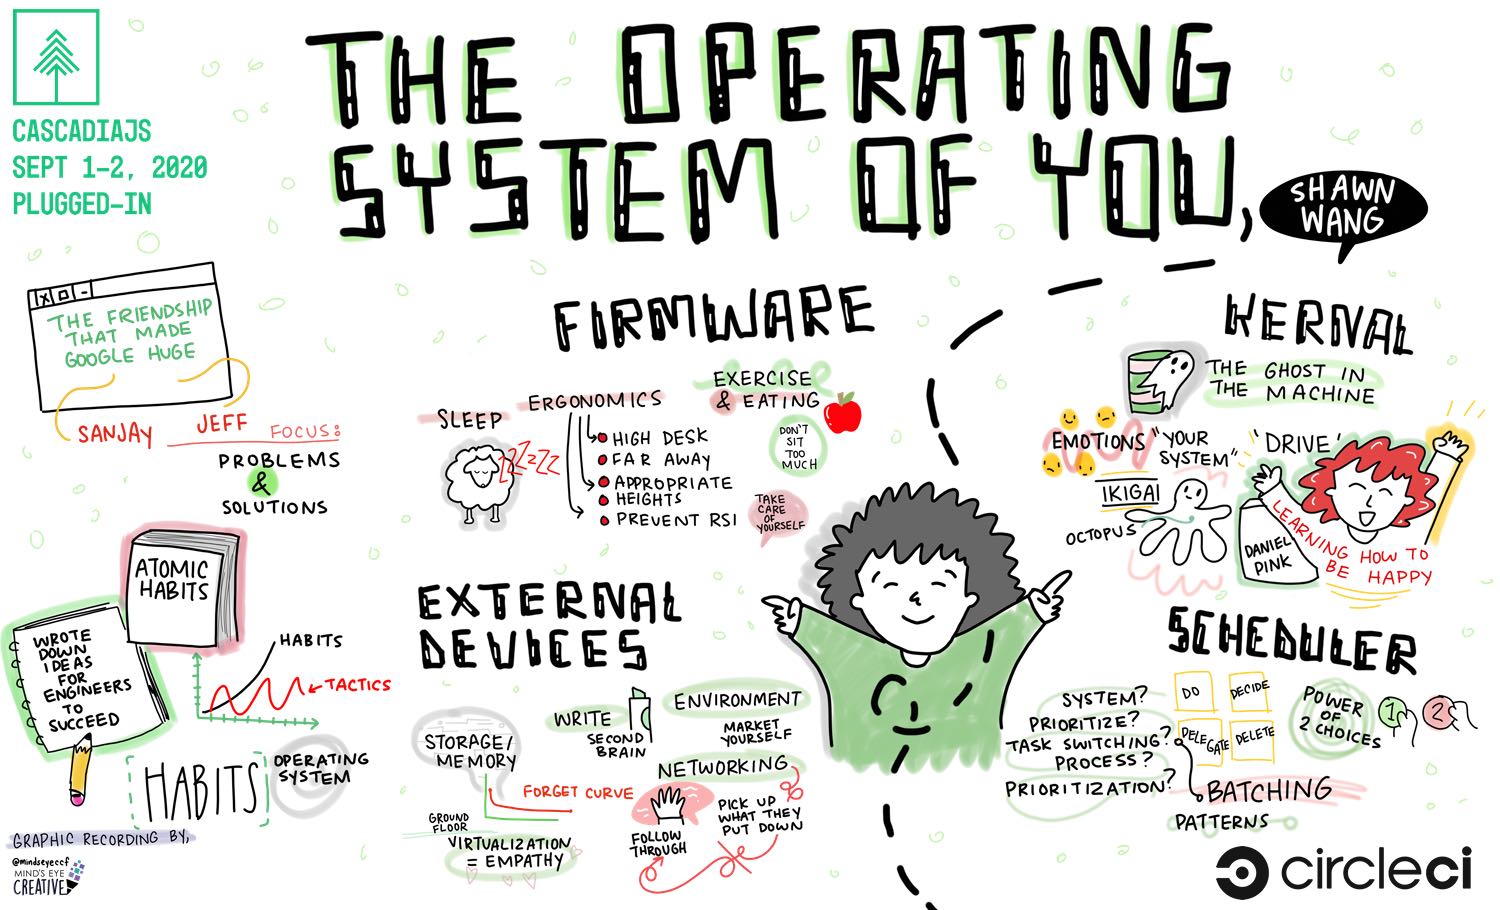 CASCADIAJS
SEPT 1-2, 2020
PLUGGED-IN
THE OPERATING
SYSTEM OF YOU,
SHAWN
WANG
X
-
THE FRIENDSHIP
THAT MADE
GOOGLE HUGE
SANJAY
JEFF
FOCUS:
PROBLEMS
&
SOLUTIONS
ATOMIC
HABITS
WROTE
DOWN
IDEAS
FOR
ENGINEERS
TO
SUCCEED
HABITS
TACTICS
HABITS
OPERATING
SYSTEM
GRAPHIC RECORDING BY,
@mindseyeccf
MIND'S EYE
CREATIVE
FIRMWARE
SLEEP
ZZZZZ
ERGONOMICS
HIGH DESK
FAR AWAY
APPROPRIATE
HEIGHTS
PREVENT RSI
EXERCISE
& EATING
DON'T
SIT
TOO
MUCH
TAKE
CARE
OF
YOURSELF
EXTERNAL
DEVICES
STORAGE/
MEMORY
FORGET CURVE
GROUND
FLOOR
VIRTUALIZATION
= EMPATHY
WRITE
SECOND
BRAIN
ENVIRONMENT
MARKET
YOURSELF
NETWORKING
FOLLOW
THROUGH
PICK UP
WHAT THEY
PUT DOWN
KERNAL
THE GHOST IN
THE MACHINE
EMOTIONS
"YOUR
SYSTEM"
IKIGAI
OCTOPUS
'DRIVE'
DANIEL
PINK
LEARNING HOW TO
BE HAPPY
SCHEDULER
SYSTEM?
PRIORITIZE?
TASK SWITCHING?
PROCESS?
PRIORITIZATION?
DO
DECIDE
DELEGATE
DELETE
POWER
OF
2 CHOICES
1
2
BATCHING
PATTERNS
circleci